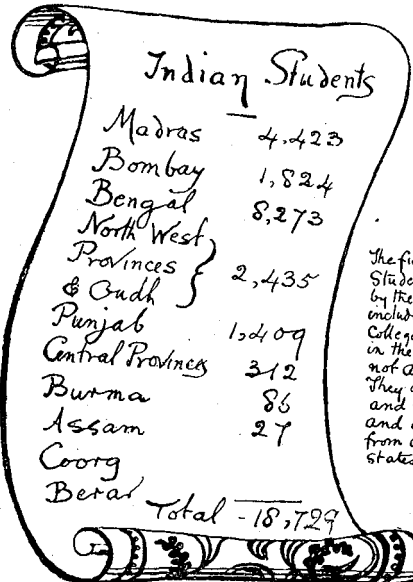 Indian Students
Madras 4,423
Bombay 1,824
Bengal 8,273
North West
Provinces
& Oudh } 2,435
Punjab 1,409
Central Provinces 312
Burma 86
Assam 27
Coorg
Berar
Total - 18,729
The
by the
in the
not
They
and
and
from
states